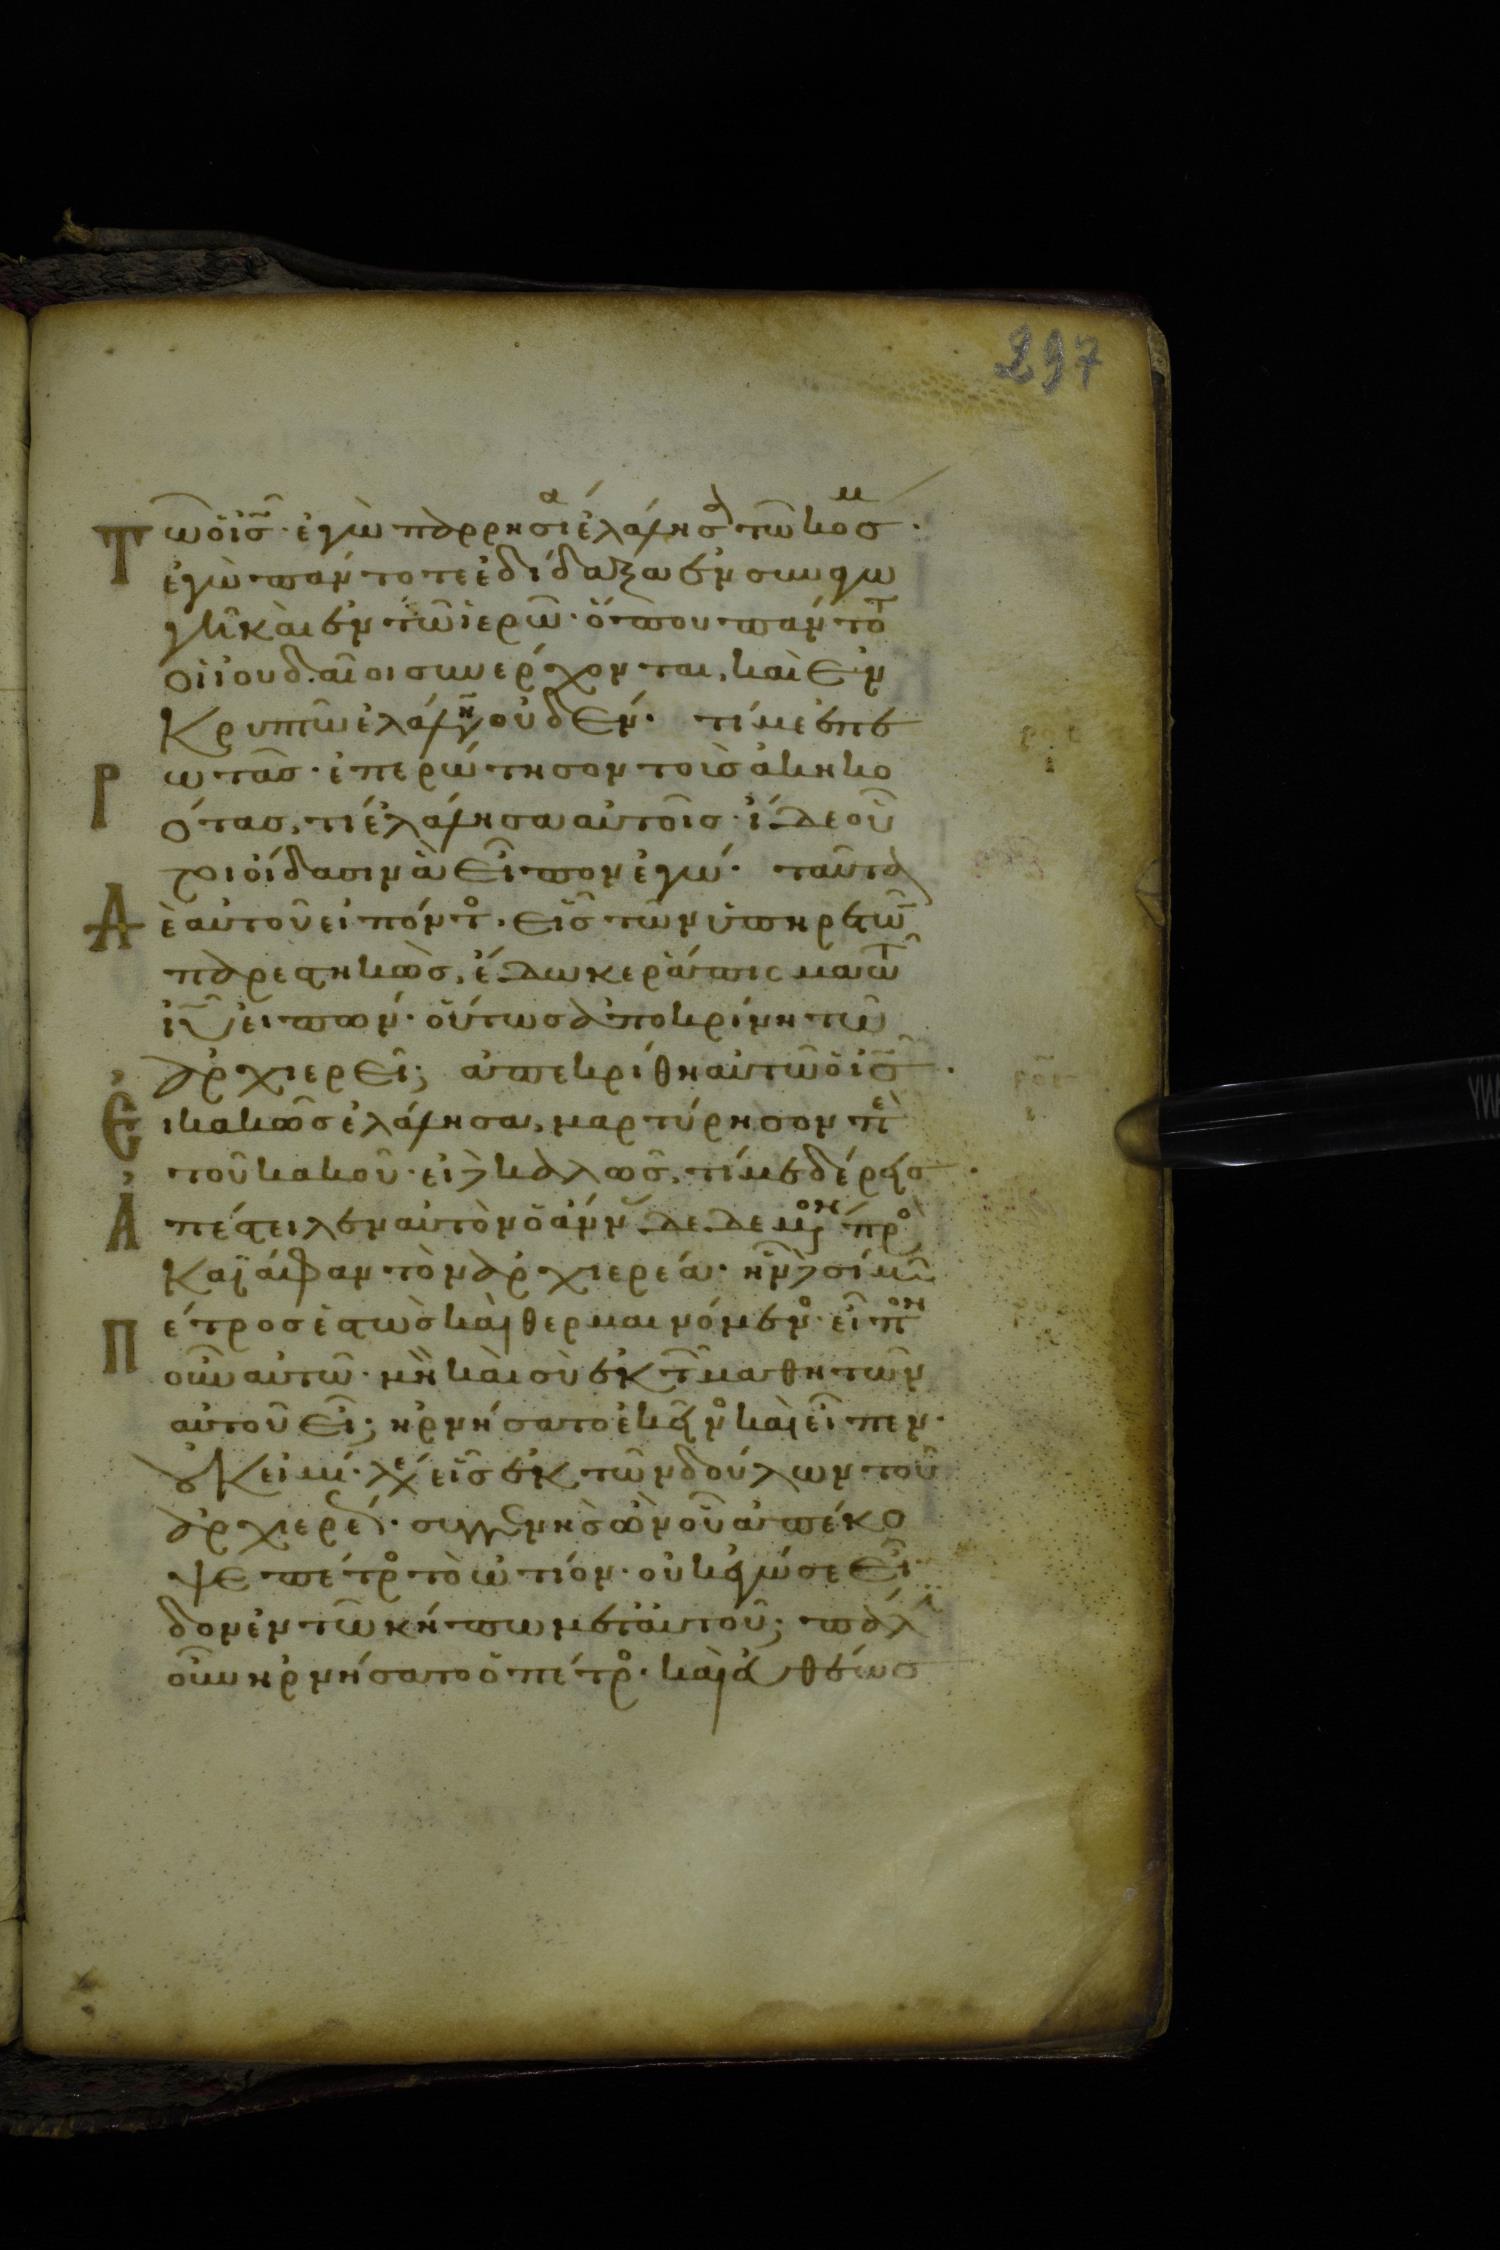 297
τῶ ὁ ἰς· ἐγὼ παρρησία ἐλάλησα τῶ κόσμ·
ἐγὼ πάντοτε ἐδίδαξα ἐν συναγω
γῆ καὶ ἐν τῶ ἱερῶ· ὅπου πάντοτ
οἱ ἰουδαῖοι συνέρχονται, καὶ ἐν
Κρυπτῶ ἐλάλησ οὐδέν· τί με ἐπε
Ρωτᾶς· ἐπερώτησον τοὺς ἀκηκο
ότας, τί ἐλάλησα αὐτοῖς· ἴδε οὗ
τοι οἴδασιν ἃ εἶπον ἐγώ· ταῦτα
Δὲ αὐτοῦ εἰπόντο· εἷς τῶν ὑπηρετῶ
παρεστηκὼς, ἔδωκε ράπισμα τῶ
ἰυ εἰπών· οὕτως ἀποκρίνη τῶ
ἀρχιερεῖ; ἀπεκρίθη αὐτῶ ὁ ἰς·
Εἰ κακῶς ἐλάλησα, μαρτύρησον πε
τοῦ κακοῦ· εἰ δὲ καλῶς, τί με δέρεις·
Ἀπέστειλεν αὐτὸν ὁ ἄνν δεδεμον πρὸ
Καϊάφαν τὸν ἀρχιερέα· ἦν δὲ σίμω
Πέτρος ἑστὼς καὶ θερμαινόμενο· εἶπον
οὖν αὐτῶ· μὴ καὶ σὺ ἐκ τῶ μαθητῶν
αὐτοῦ εἶ; ἠρνήσατο ἐκεῖνο καὶ εἶπεν·
οὐκ εἰμί· λέγει εἷς ἐκ τῶν δούλων τοῦ
ἀρχιερέω· συγγενὴς ὢν οὗ ἀπέκο
ψε πέτρο τὸ ὠτίον· οὐκ ἐγώ σε εἶ
δον ἐν τῶ κήπω μετ᾽ αὐτοῦ; πάλι
οὖν ἠρνήσατο ὁ πέτρο· καὶ εὐθέως